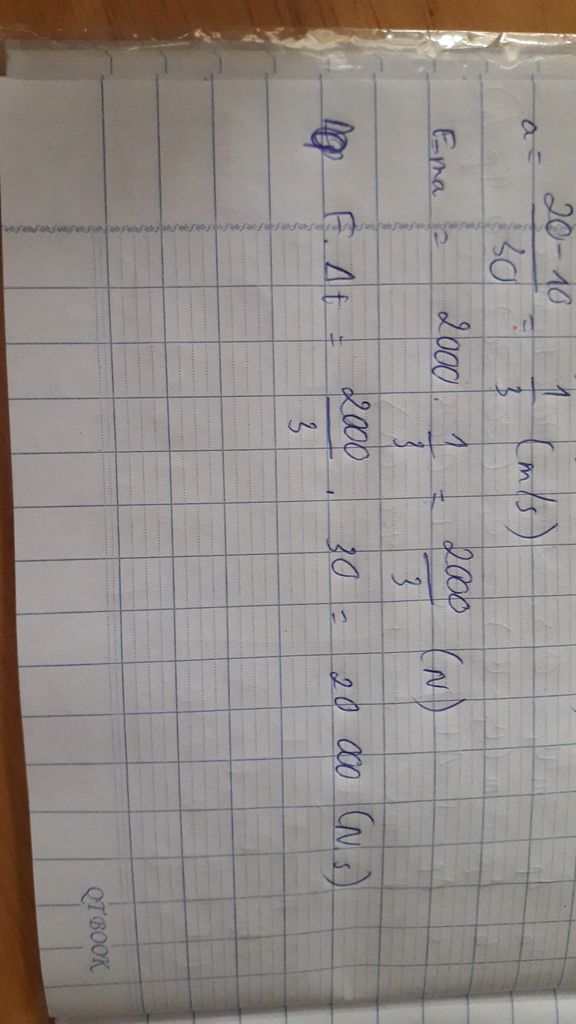 a = 20-10 / 30 = 1/3 (m/s)
F=ma = 2000 . 1/3 = 2000/3 (N)
F. Δt = 2000/3 . 30 = 20 000 (N s)
QTBOOK